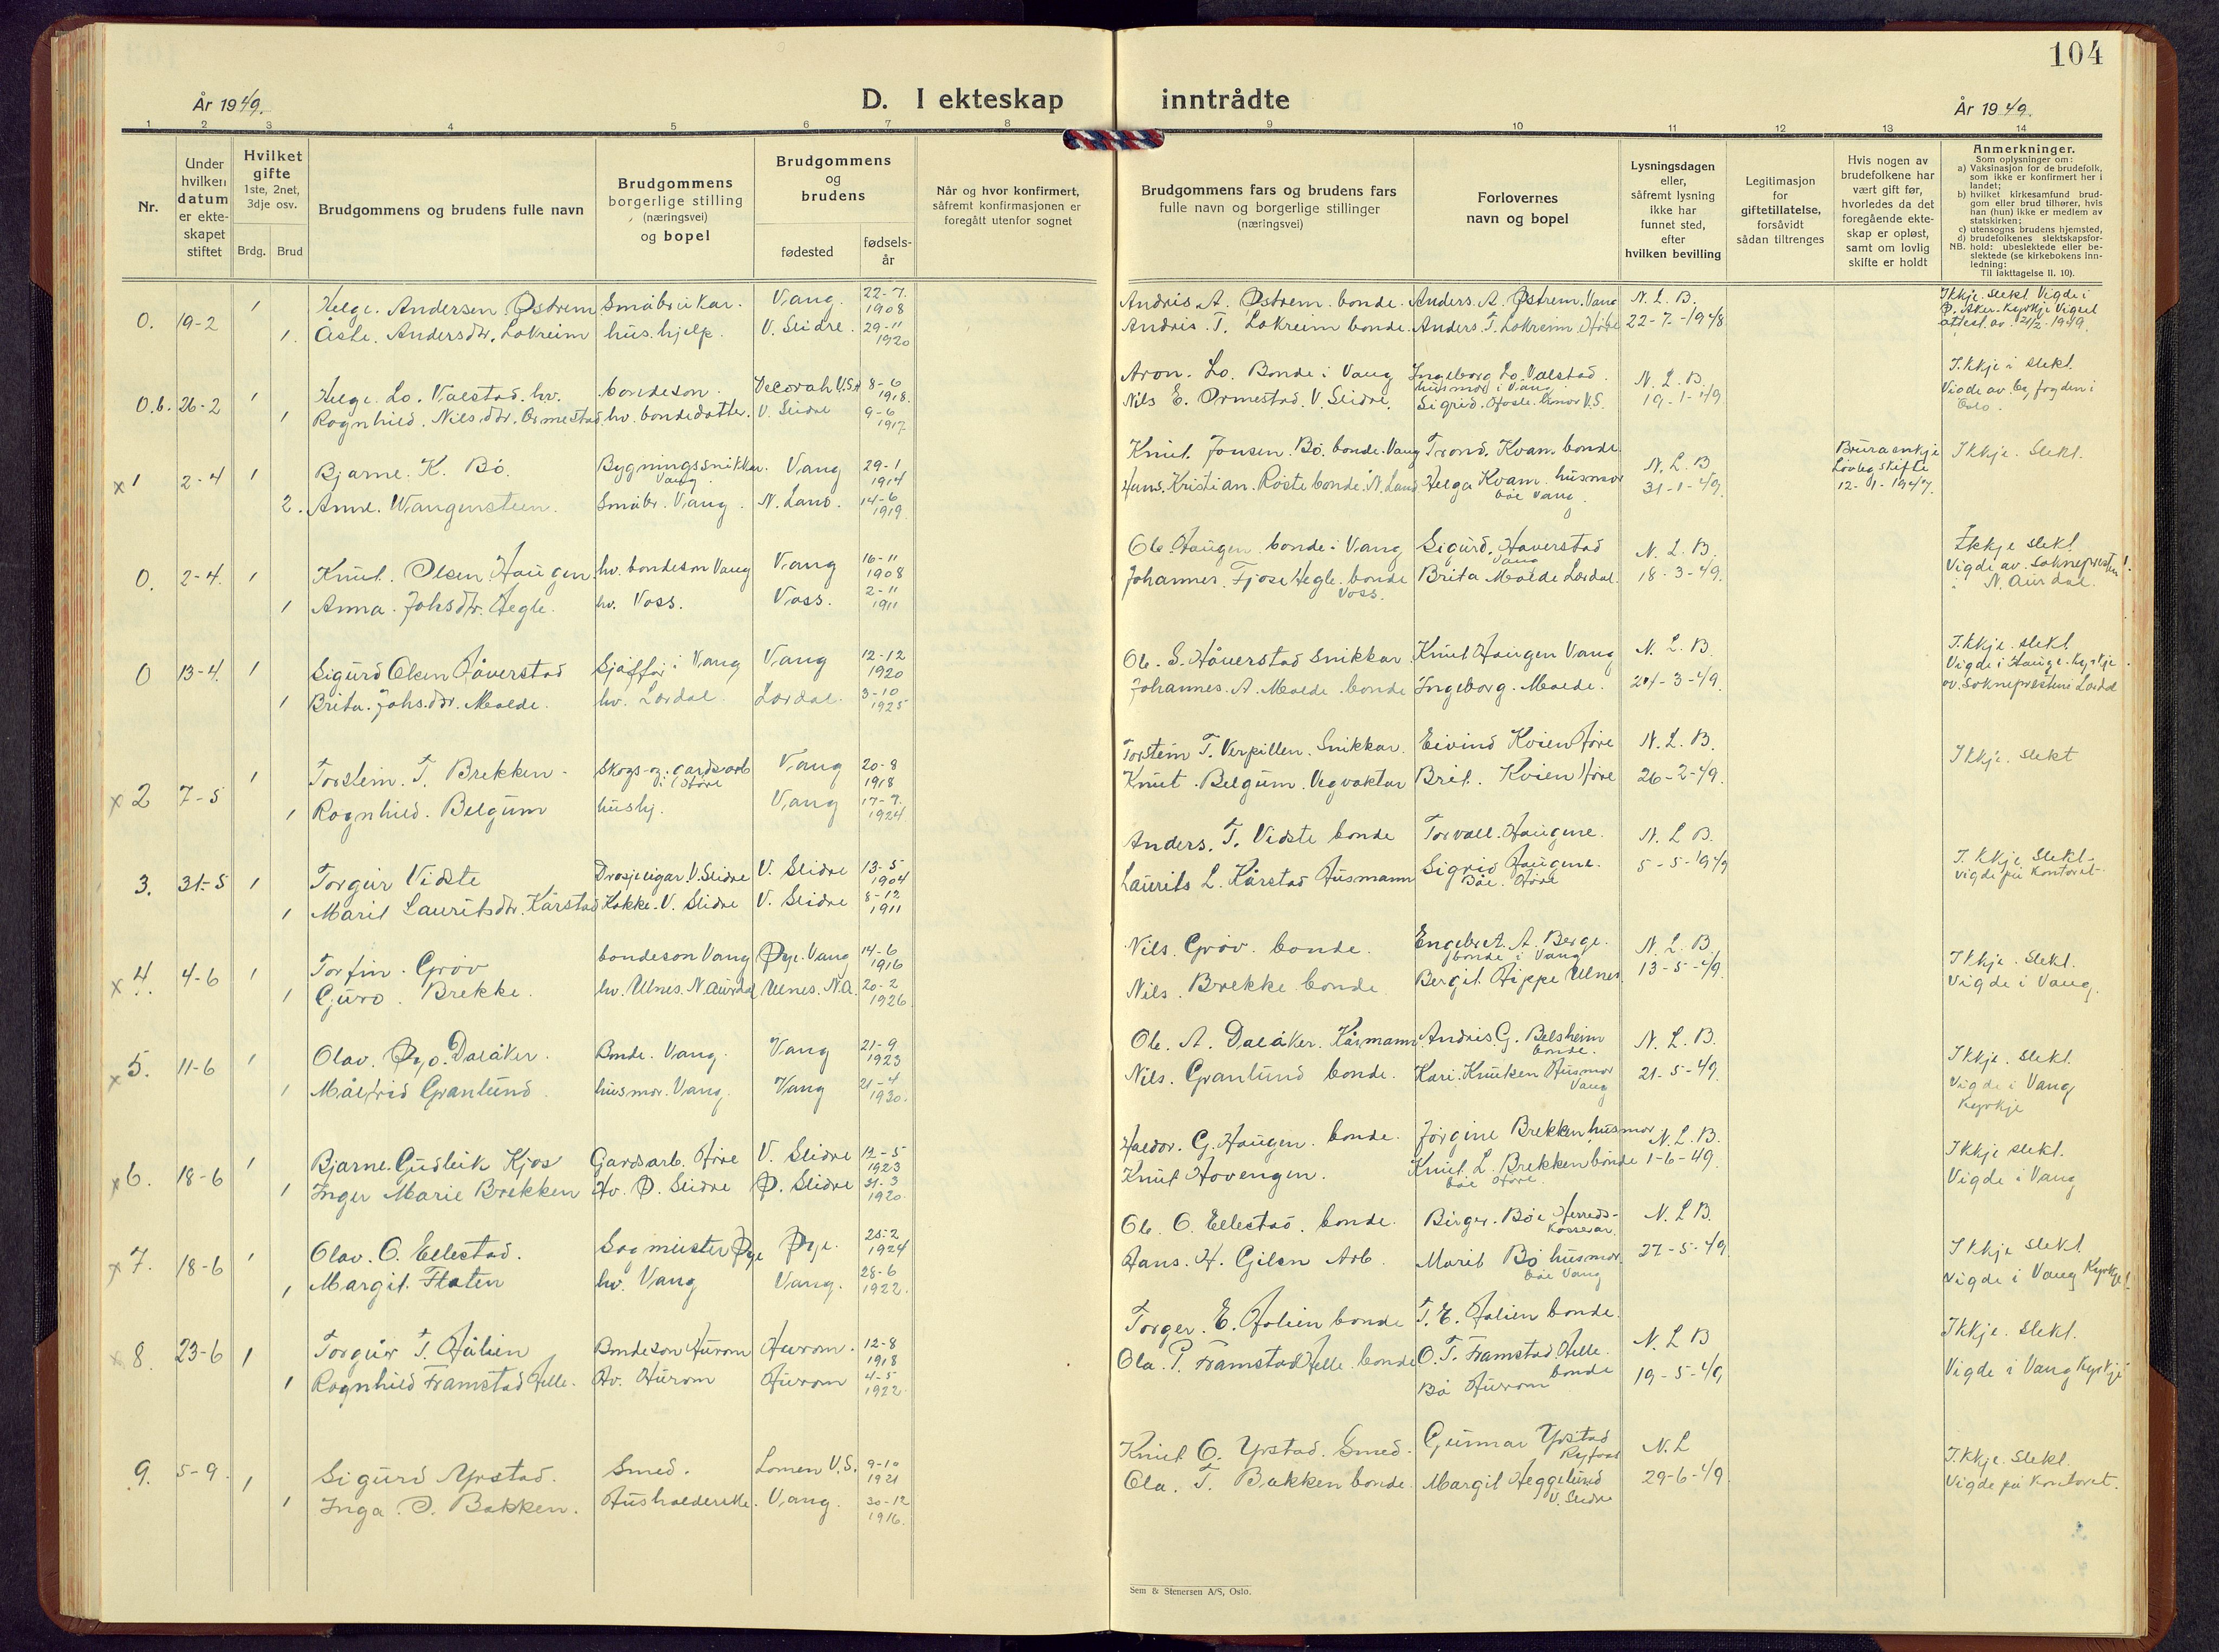 104
År 1949.
D. I ekteskap inntrådte
År 1949.
1 2 3 4 5 6 7 8 9 10 11 12 13 14
Nr.
Under hvilken datum er ekte-skapet stiftet
Hvilket gifte 1ste, 2net, 3dje osv.
Brdg. Brud
Brudgommens og brudens fulle navn
Brudgommens borgerlige stilling (næringsvei) og bopel
Brudgommens og brudens
fødested
fødsels-år
Når og hvor konfirmert, såfremt konfirmasjonen er foregått utenfor sognet
Brudgommens fars og brudens fars fulle navn og borgerlige stillinger (næringsvei)
Forlovernes navn og bopel
Lysningsdagen eller, såfremt lysning ikke har funnet sted, efter hvilken bevilling
Legitimasjon for giftetillatelse, forsåvidt sådan tiltrenges
Hvis nogen av brudefolkene har vært gift før, hvorledes da det foregående ekte-skap er opløst, samt om lovlig skifte er holdt
Anmerkninger.
Som oplysninger om:
a) Vaksinasjon for de brudefolk, som ikke er konfirmert her i landet;
b) hvilket kirkesamfund brud-gom eller brud tilhører, hvis han (hun) ikke er medlem av statskirken;
c) utensogns brudens hjemsted,
d) brudefolkenes slektskapsfor-hold: ubeslektede eller be-slektede (se kirkebokens Inn-ledning:
NB.
Til iakttagelse II. 10).
0. 19-2 1 Helge. Andersen Østrem Småbrukar. Vang. 22-7. 1908 Andris A. Østrem. bonde. Anders. A. Østrem. Vang N. L. B. Ikkje. slekt. Vigde i
1. Åste. Andersdtr. Lokreim hus.hjelp. V. Slidre. 29-11 1920 Andris. T. Lokreim bonde. Anders. T. Lokreim. Høre 22-7-1948 Ø. Aker. Kyrkje Vigsel attest. av. 21/2-1949.
0.b. 26-2 1 Helge. Lo. Valstad. hv. bondeson. Decorah U.S.A 8-6 1918. Aron. Lo. Bonde i Vang Ingeborg Lo. Valstad. husmor i Vang. N. L. B. I.kkje i slekt.
1 Ragnhild. Nils.dtr. Ormestad. hv. bondedotter. V. Slidre 9-6 1917 Nils E. Ormestad. V. Slidre. Sigrid. V.S. 19-1-49 Vigde av. by.fogden i Oslo.
x1 2-4 1 Bjarne. K. Bö. Bygningssnikkar. Vang Vang 29-1 1914 Knut. Jonsen. Bö. bonde. Vang Trond. Kvam. bonde N. L. B Brura enkje Ikkje. slekt.
2. Anne. Wangensteen. Småbr. Vang. N. Land. 14-6 1919 Hans. Kristian. Röste bonde. N. Land Helga Kvam. husmor båe Vang. 31-1-49. Lovleg skifte 12-1-1947.
0. 2-4. 1 Knut. Olsen. Haugen. hv. bondeson Vang Vang 16-11 1908 Ole. Haugen. bonde i Vang Sigurd. Håverstad Vang N. L. B. Ikkje slekt.
1 Anna. Johsdtr. Hegle. hv. Voss. Voss. 2-11 1911 Johannes. Fjose Hegle. bonde Voss. Brita Molde Lærdal. 18-3-49. Vigde av. soknepresten i N. Aurdal.
0 13-4. 1 Sigurd Olsen Håverstad Sjåffør i Vang Vang 12-12 1920 Ole. S. Håverstad snikkar. Knut Haugen Vang N. L. B. I.kkje. slekt.
1 Brita. Johs.dtr. Molde. hv. Lærdal. Lærdal. 3-10 1925 Johannes. A. Molde. bonde Ingeborg. Molde. 24-3-49. Vigde i Hauge. Kyrkje. av. Soknepresten i Lærdal
x2 7-5 1 Torstein. T. Brekken. Skogs-og. gardsarb i Høre Vang 20-8 1918 Torstein T. Verpillen. Snikkar. Eivind Kvien Høre N. L. B. Ikkje. slekt
1 Ragnhild. Belgum hushj. Vang 17-7. 1924 Knut. Belgum. Vegvaktar Brit. Kvien Høre 26-2-49.
3. 31-5 1 Torgeir Vidste Drosjeeigar. V. Slidre V. Slidre 13-5 1904 Anders. T. Vidste bonde Torvald. Haugene. N. L. B. I. kkje. slekt
1 Marit Lauritsdtr. Kårstad Kokke. V. Slidre V. Slidre 8-12 1911 Laurits L. Kårstad Husmann Sigrid Haugene. Båe. Høre 5-5-1949 vigde på kontoret
x4. 4-6 1 Torfin. Gröv bondeson Vang Øye. Vang 14-6 1916 Nils. Gröv. bonde. Engebret. A. Berge. bonde i Vang N. L. B. Ikkje. slekt.
1 Guro. Brekke. hv. Ulnes. N. Aurdal Ulnes. N.A. 20-2 1926 Nils. Brekke. bonde Bergit. Hippe Ulnes. 13-5-49. Vigde i Vang.
x5. 11-6 1 Olav. Øyo. Dalåker. Bonde. Vang. Vang 21-9 1923 Ole. A. Dalåker. Kårmann Andris. G. Belsheim bonde. N. L. B. Ikkje. slekt.
1 Målfrid Granlund. husmor. Vang. Vang 21-4 1930. Nils. Granlund bonde. Kari. Knutsen Husmor Vang 21-5-49. Vigde i Vang Kyrkje
x6. 18-6 1 Bjarne. Gudleik Kjos Gardsarb. Høre V. Slidre 12-5 1923 Haldor. G. Haugen. bonde. Jørgine Brekken husmor N. L. B. Ikkje slekt.
1 Inger Marie Brekken Hv. Ø. Slidre Ø. Slidre 31-3 1920 Knut Hovengen. Knut. L. Brekken bonde båe Høre. 1-6-49. Vigde i Vang
x7. 18-6 1 Olav. O. Ellestad. Sagmeister Øye Øye. 25-2 1924 Ole. O. Ellestad. bonde. Birger. Böe Herreds-kasserar. N. L B. Ikkje slekt.
1 Margit. Flaten hv. Vang Vang. 28-6 1922. Hans. H. Gilen Arb. Marit Bö husmor. båe Vang 27-5-49. Vigde i Vang Kyrkje!
x8. 23-6 1 Torgeir T. Hålien Bondeson Hurom Hurom. 12-8 1918 Torger. E. Holien bonde T. E. Holien bonde. N. L B Ikkje. slekt.
1 Ragnhild Framstad Helle. Hv. Hurom Hurom 4-5 1922 Ola. P. Framstad Helle. bonde O. T. Framstad. Helle. bonde Bå Hurom 19-5-49 Vigde i Vang Kyrkje
9. 5-9. 1 Sigurd Ystad. Smed. Lomen V.S. 9-10 1921 Knut O. Ystad. Smed. Gunnar Ystad N. L I.kkje. slekt.
1 Inga. O. Bakken. Husholderske. Vang. 30-12 1916. Ola. T. Bakken bonde. Margit Heggelund V. Slidre 29-6-49. Vigde på kontoret.
Sem & Stenersen A/S, Oslo.